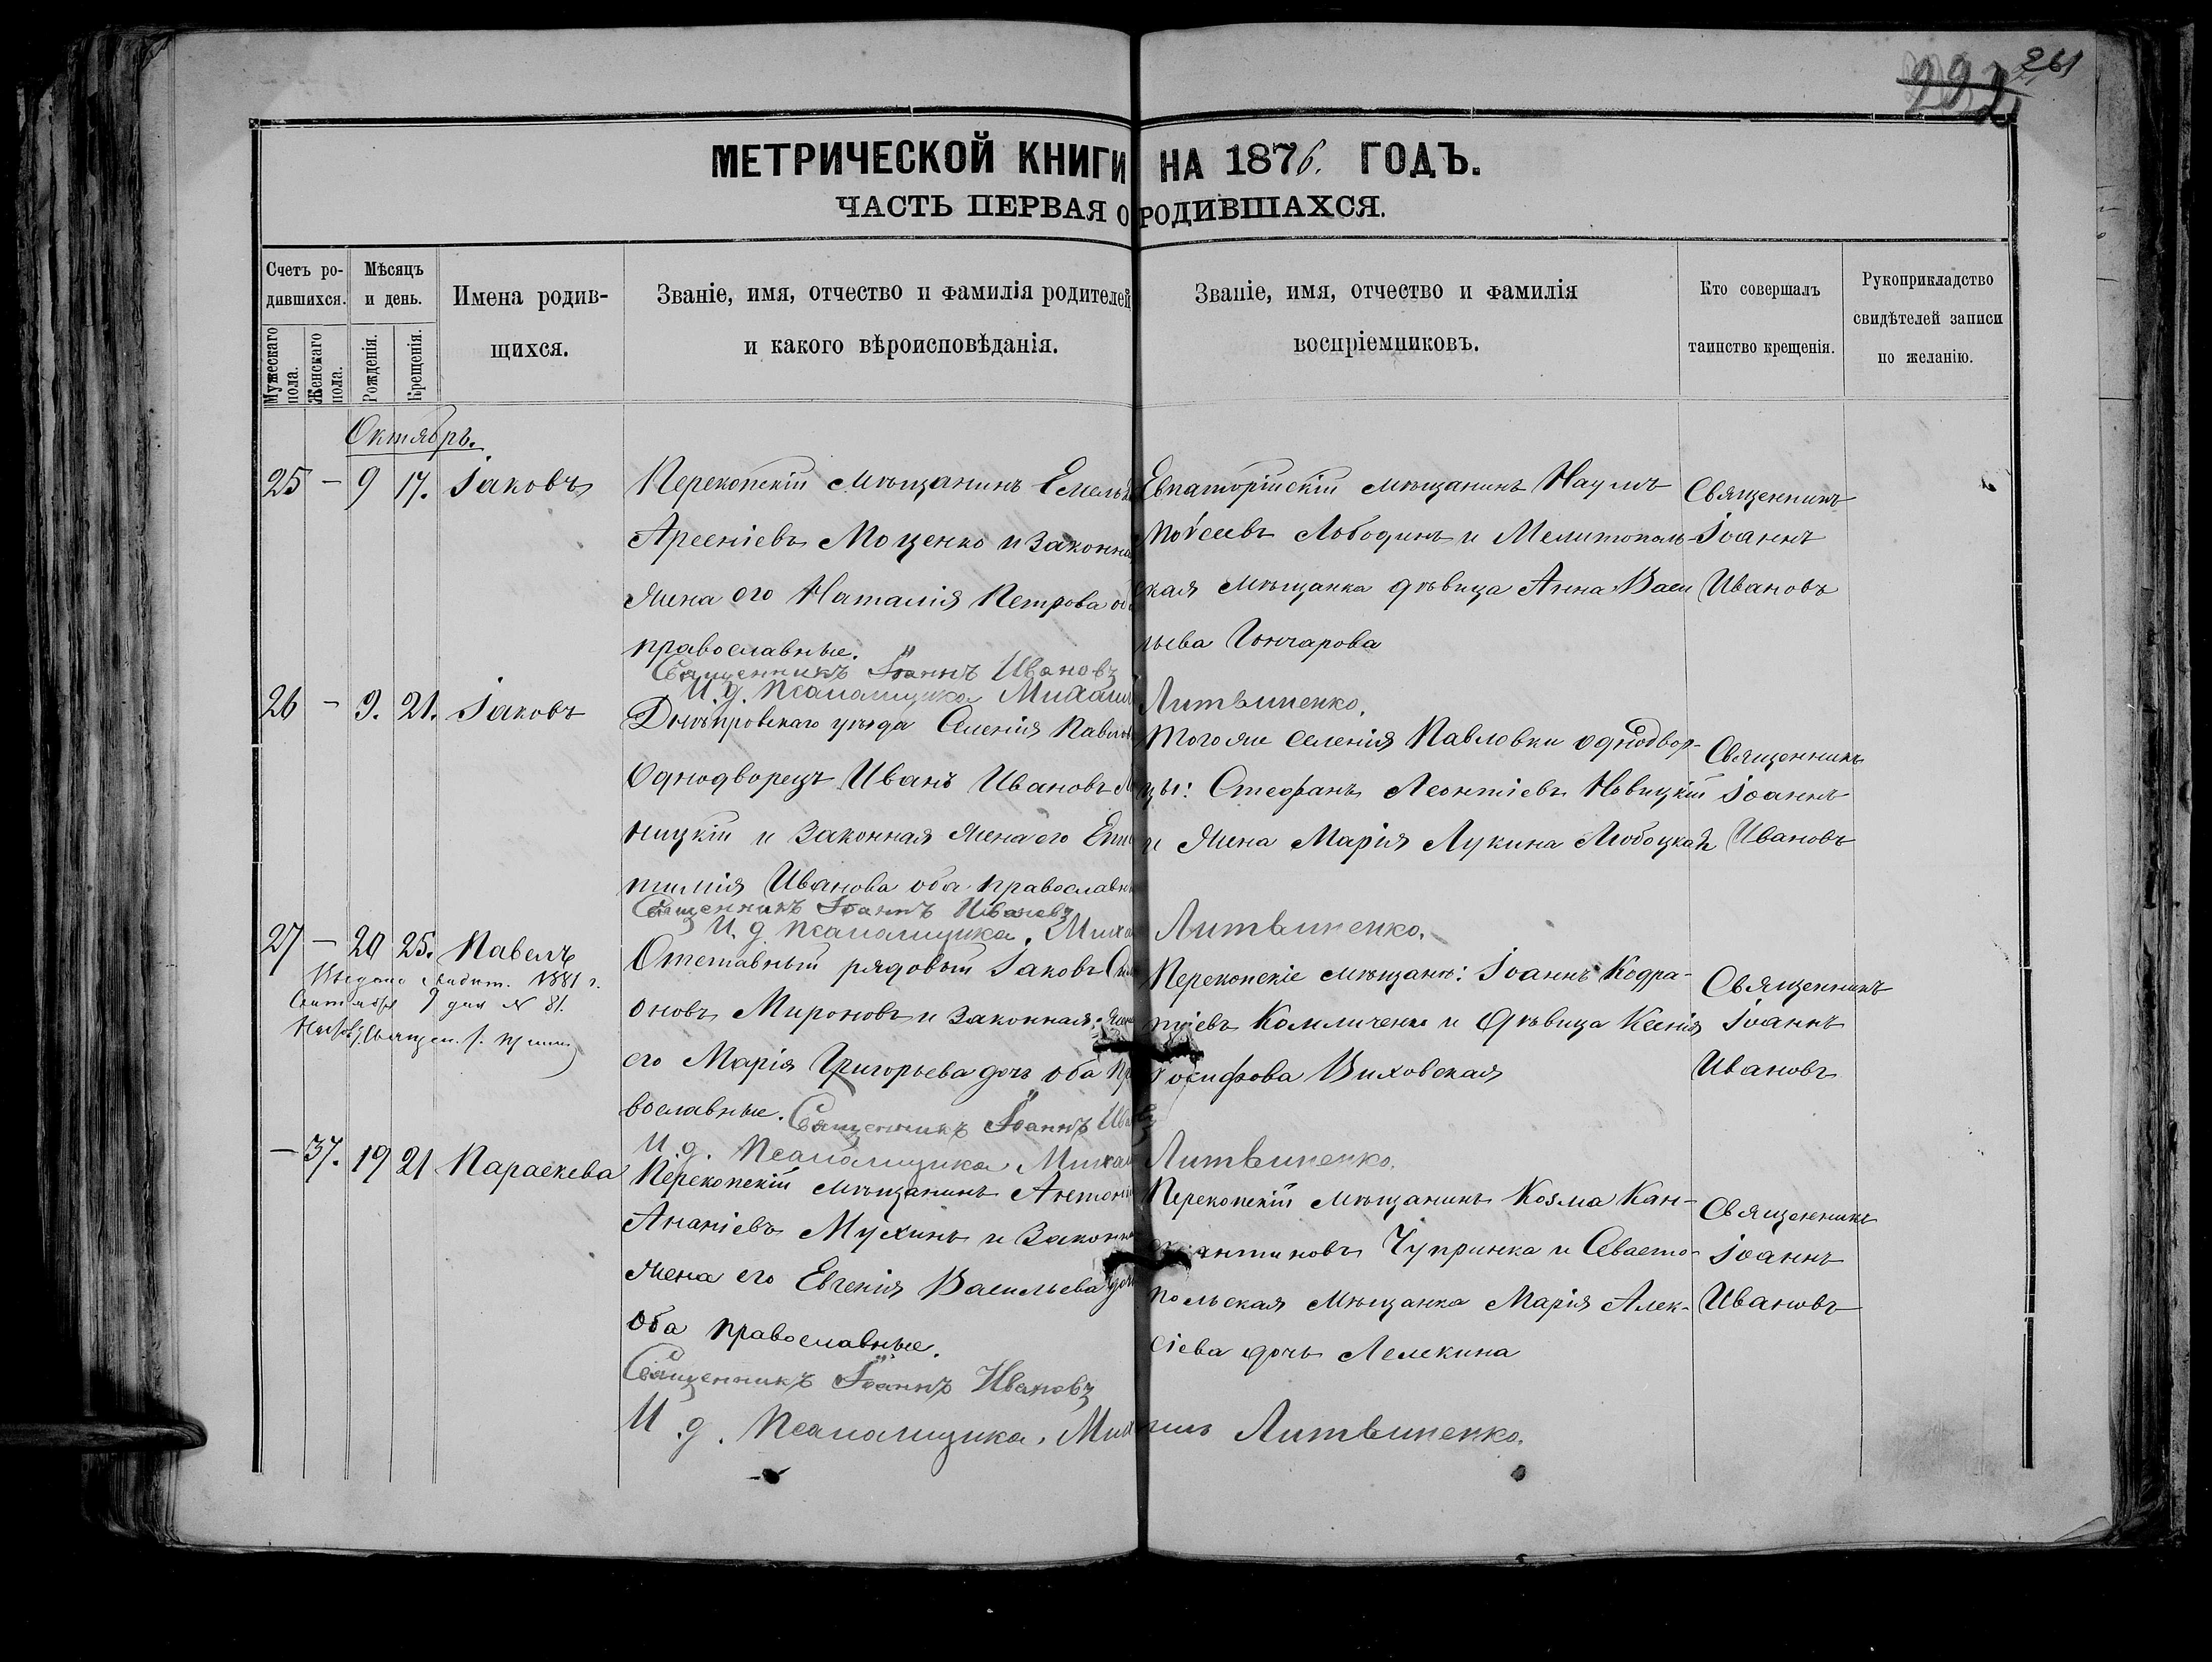 261
292
МЕТРИЧЕСКОЙ КНИГИ НА 1876. ГОДЪ.
ЧАСТЬ ПЕРВАЯ О РОДИВШАХСЯ.
Счетъ ро-
дившихся.
Мужескаго пола.
Женскаго пола.
Мѣсяцъ
и день.
Рожденія.
Крещенія.
Имена родив-
шихся.
Званіе, имя, отчество и фамилія родителей
и какого вѣроисповѣданія.
Званіе, имя, отчество и фамилія
воспріемниковъ.
Кто совершалъ
таинство крещенія.
Рукоприкладство
свидѣтелей записи
по желанію.
Октябрь.
25 – 9 17. Іаковъ
Перекопскій мѣщанинъ Емельян
Арсеніевъ Моценко и законна
жена его Наталія Петрова об
православные.
Евпаторійскій мѣщанинъ Наумъ
Моѵсеевъ Лободинъ и Мелитополь-
ская мѣщанка дѣвица Анна Васи
льева Гончарова
Священникъ
Іоаннъ
Ивановъ
Священникъ Іоаннъ Ивановъ
И. д. псаломщика Михаил Литвиненко.
26 – 9. 21. Іаковъ
Днѣпровскаго уѣзда Селенія Павлов
Однодворецъ Иванъ Ивановъ
ницкій и законная жена его
Иванова оба православн
Того же селенія Павловки однодвор-
цы: Стефанъ Леонтіевъ Новицкій
и жена Марія Лукина Любоцкая
Священникъ
Іоаннъ
Ивановъ
Священникъ Іоаннъ Ивановъ
И. д. псаломщика, Миха Литвиненко.
27 – 20 25. Павелъ
Выдано свидѣт. 1881 г.
Сентября 9 дня № 81.
Отставный рядовый Іаковъ Сим
оновъ Мироновъ и законная жена
его Марія Григорьева дочь оба пр
вославные.
Перекопскіе мѣщане: Іоаннъ Кодра-
тіевъ Комличенко и дѣвица Ксенія
Іосифова Виховская
Священникъ
Іоаннъ
Ивановъ
Священникъ Іоаннъ Ивановъ
И. д. псаломщика Михаи Литвиненко.
– 37. 19 21 Параскева
Перекопскій мѣщанинъ Антоній
Ананіевъ Мухинъ и законн
жена его Евгенія Васильева доч
оба православные.
Перекопскій мѣщанинъ Козма Кон-
стантиновъ Чупринка и Севасто-
польская мѣщанка Марія Алек-
сіева дочь Лелекина
Священникъ
Іоаннъ
Ивановъ
Священникъ Іоаннъ Ивановъ
И. д. псаломщика, Михаилъ Литвиненко.